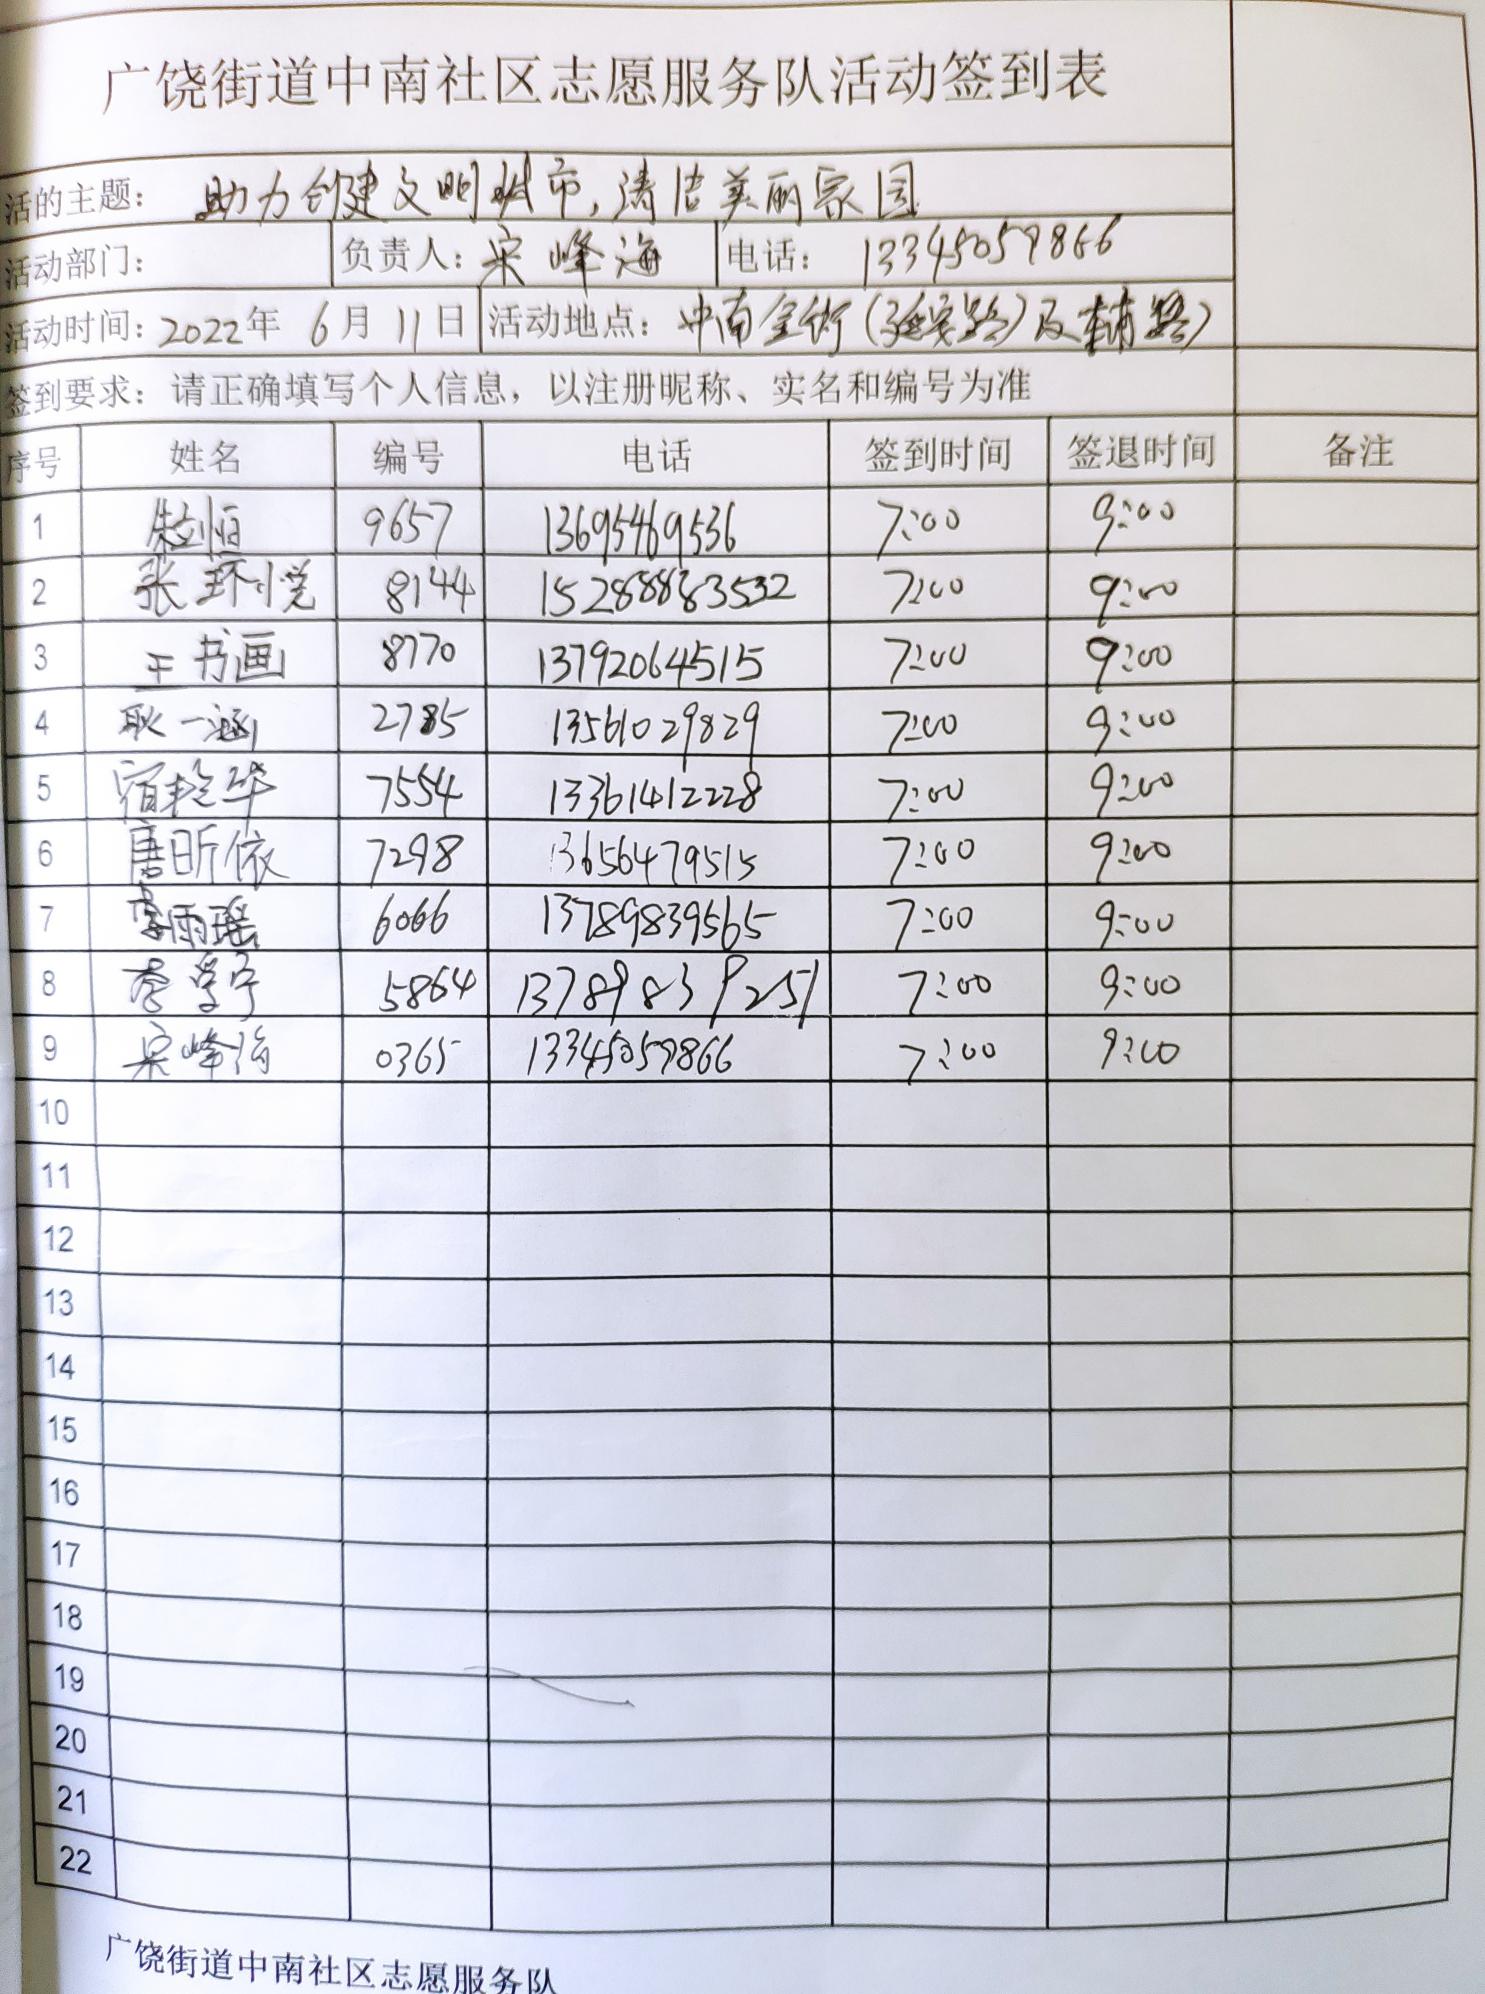 广饶街道中南社区志愿服务队活动签到表
活的主题： 助力创建文明城市，清洁美丽家园
活动部门： 负责人：宋峰海 电话：13345059866
活动时间：2022年 6月 11日 活动地点：中南金街（延安路）及辅路
签到要求：请正确填写个人信息，以注册昵称、实名和编号为准
序号 姓名 编号 电话 签到时间 签退时间 备注
1 9657 13695469536 7:00 9:00
2 张环悦 8144 15288883532 7:00 9:00
3 王书画 8770 13792064515 7:00 9:00
4 耿一涵 2785 13561029829 7:00 9:00
5 宿艳华 7554 13361412228 7:00 9:00
6 唐昕依 7298 13656479515 7:00 9:00
7 李雨瑶 6066 13789839565 7:00 9:00
8 李学宁 5864 13789839251 7:00 9:00
9 宋峰海 0365 13345059866 7:00 9:00
10
11
12
13
14
15
16
17
18
19
20
21
22
广饶街道中南社区志愿服务队